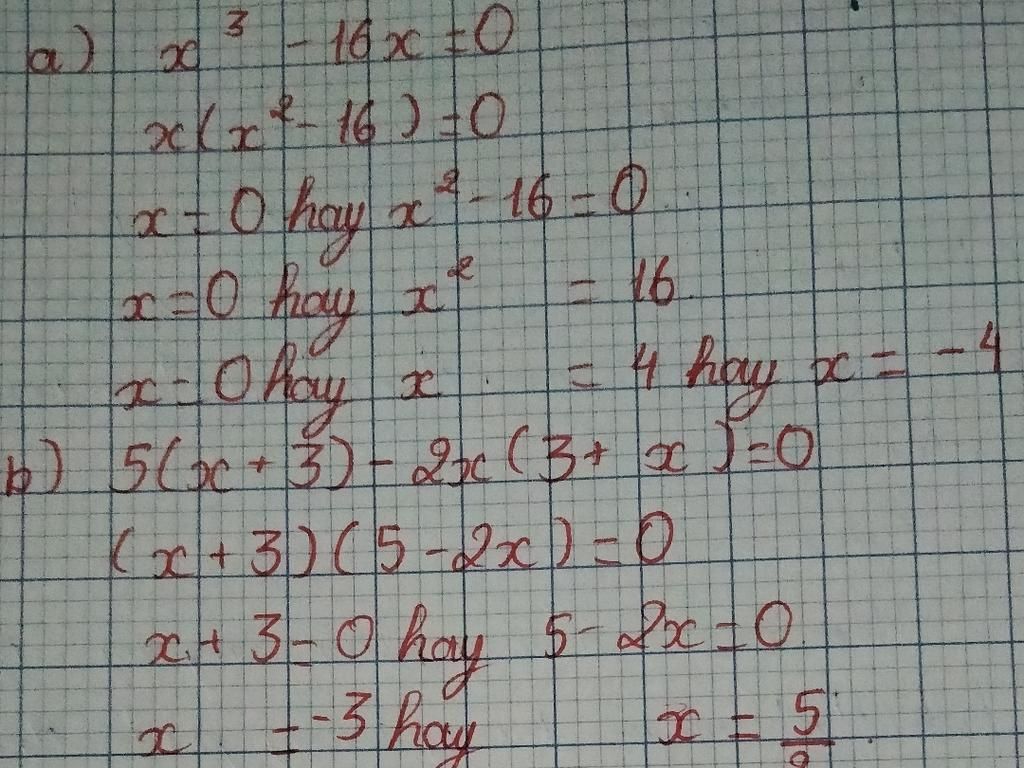 a) x³ - 16x = 0
x(x² - 16) = 0
x = 0 hay x² - 16 = 0
x = 0 hay x² = 16
x = 0 hay x = 4 hay x = -4
b) 5(x + 3) - 2x(3 + x) = 0
(x + 3)(5 - 2x) = 0
x + 3 = 0 hay 5 - 2x = 0
x = -3 hay x = 5/2